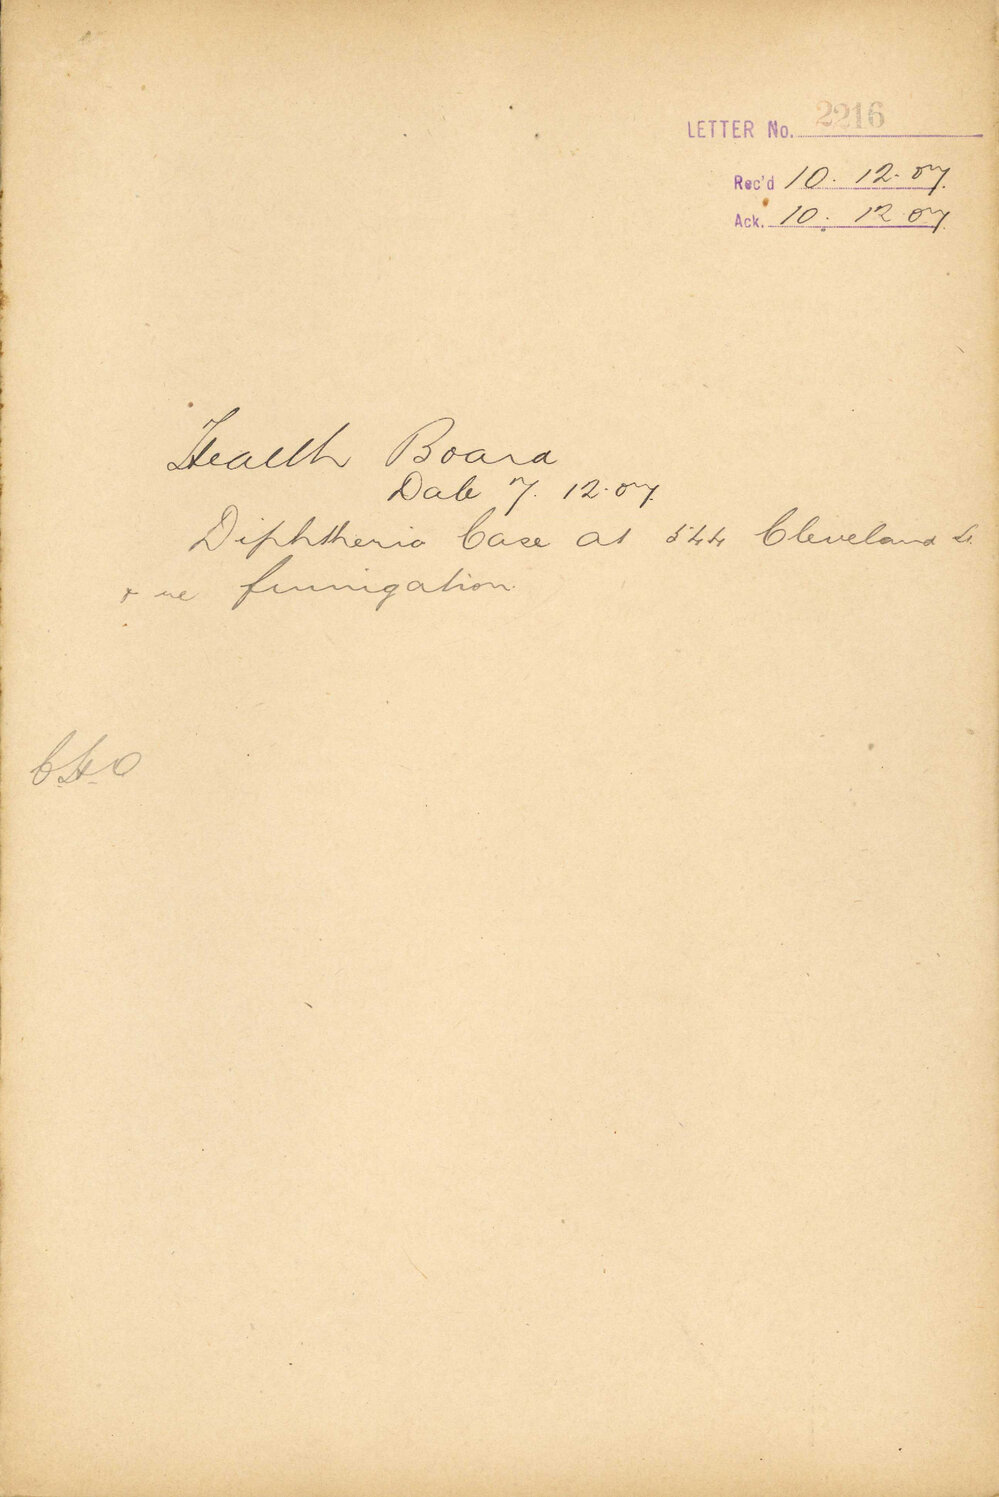 LETTER No. 2216
Rec'd 10. 12. 07.
Ack. 10. 12 07.
Health Board
Date 7. 12. 07.
Diphtheria Case at 544 Cleveland St.
& re fumigation.
C.H.O